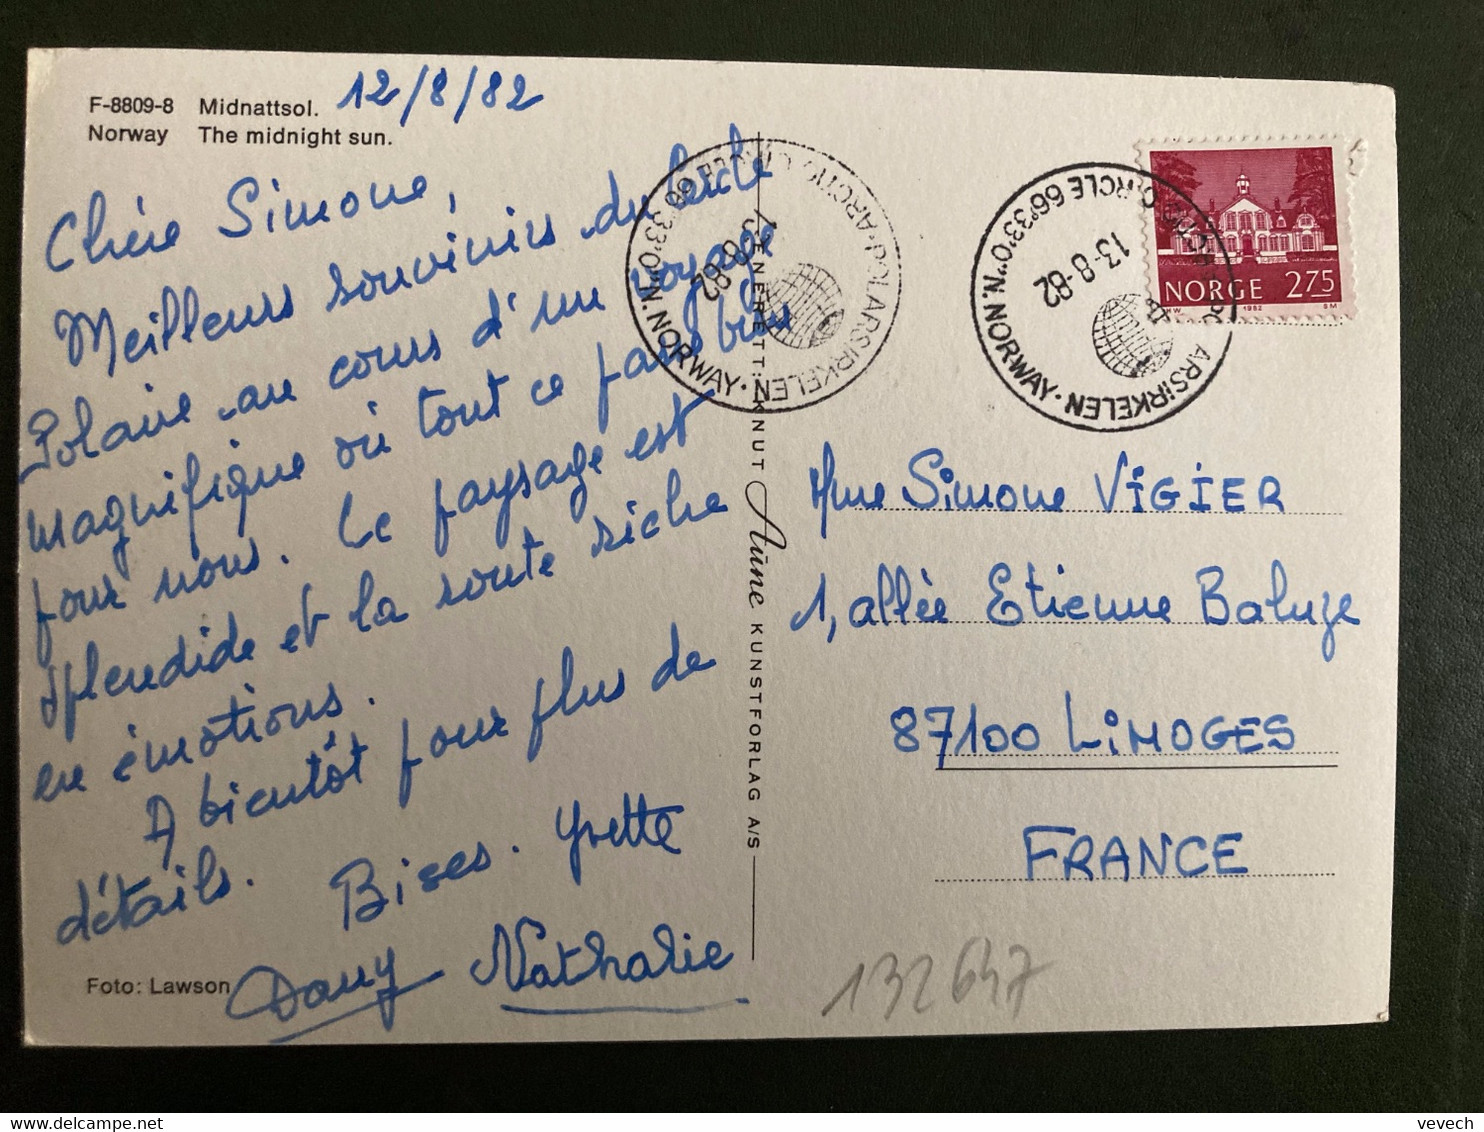 F-8809-8 Midnattsol. 12/8/82
Norway The midnight sun.
Chère Simone,
Meilleurs souvenirs du Cercle
Polaire au cours d'un voyage
magnifique où tout ce passe bien
pour nous. Le paysage est
splendide et la route riche
en émotions.
A bientôt pour plus de
détails. Bises. Yvette
Dany Nathalie
Foto: Lawson
ENERETT: KNUT Aune KUNSTFORLAG A/S
POLARSIRKELEN · ARCTIC CIRCLE 66°33'0"N. NORWAY ·
13-8-82
POLARSIRKELEN · ARCTIC CIRCLE 66°33'0"N. NORWAY ·
13-8-82
NORGE 275
1982
Mme Simone VIGIER
1, allée Etienne Baluze
87100 LIMOGES
FRANCE
132647
vevech